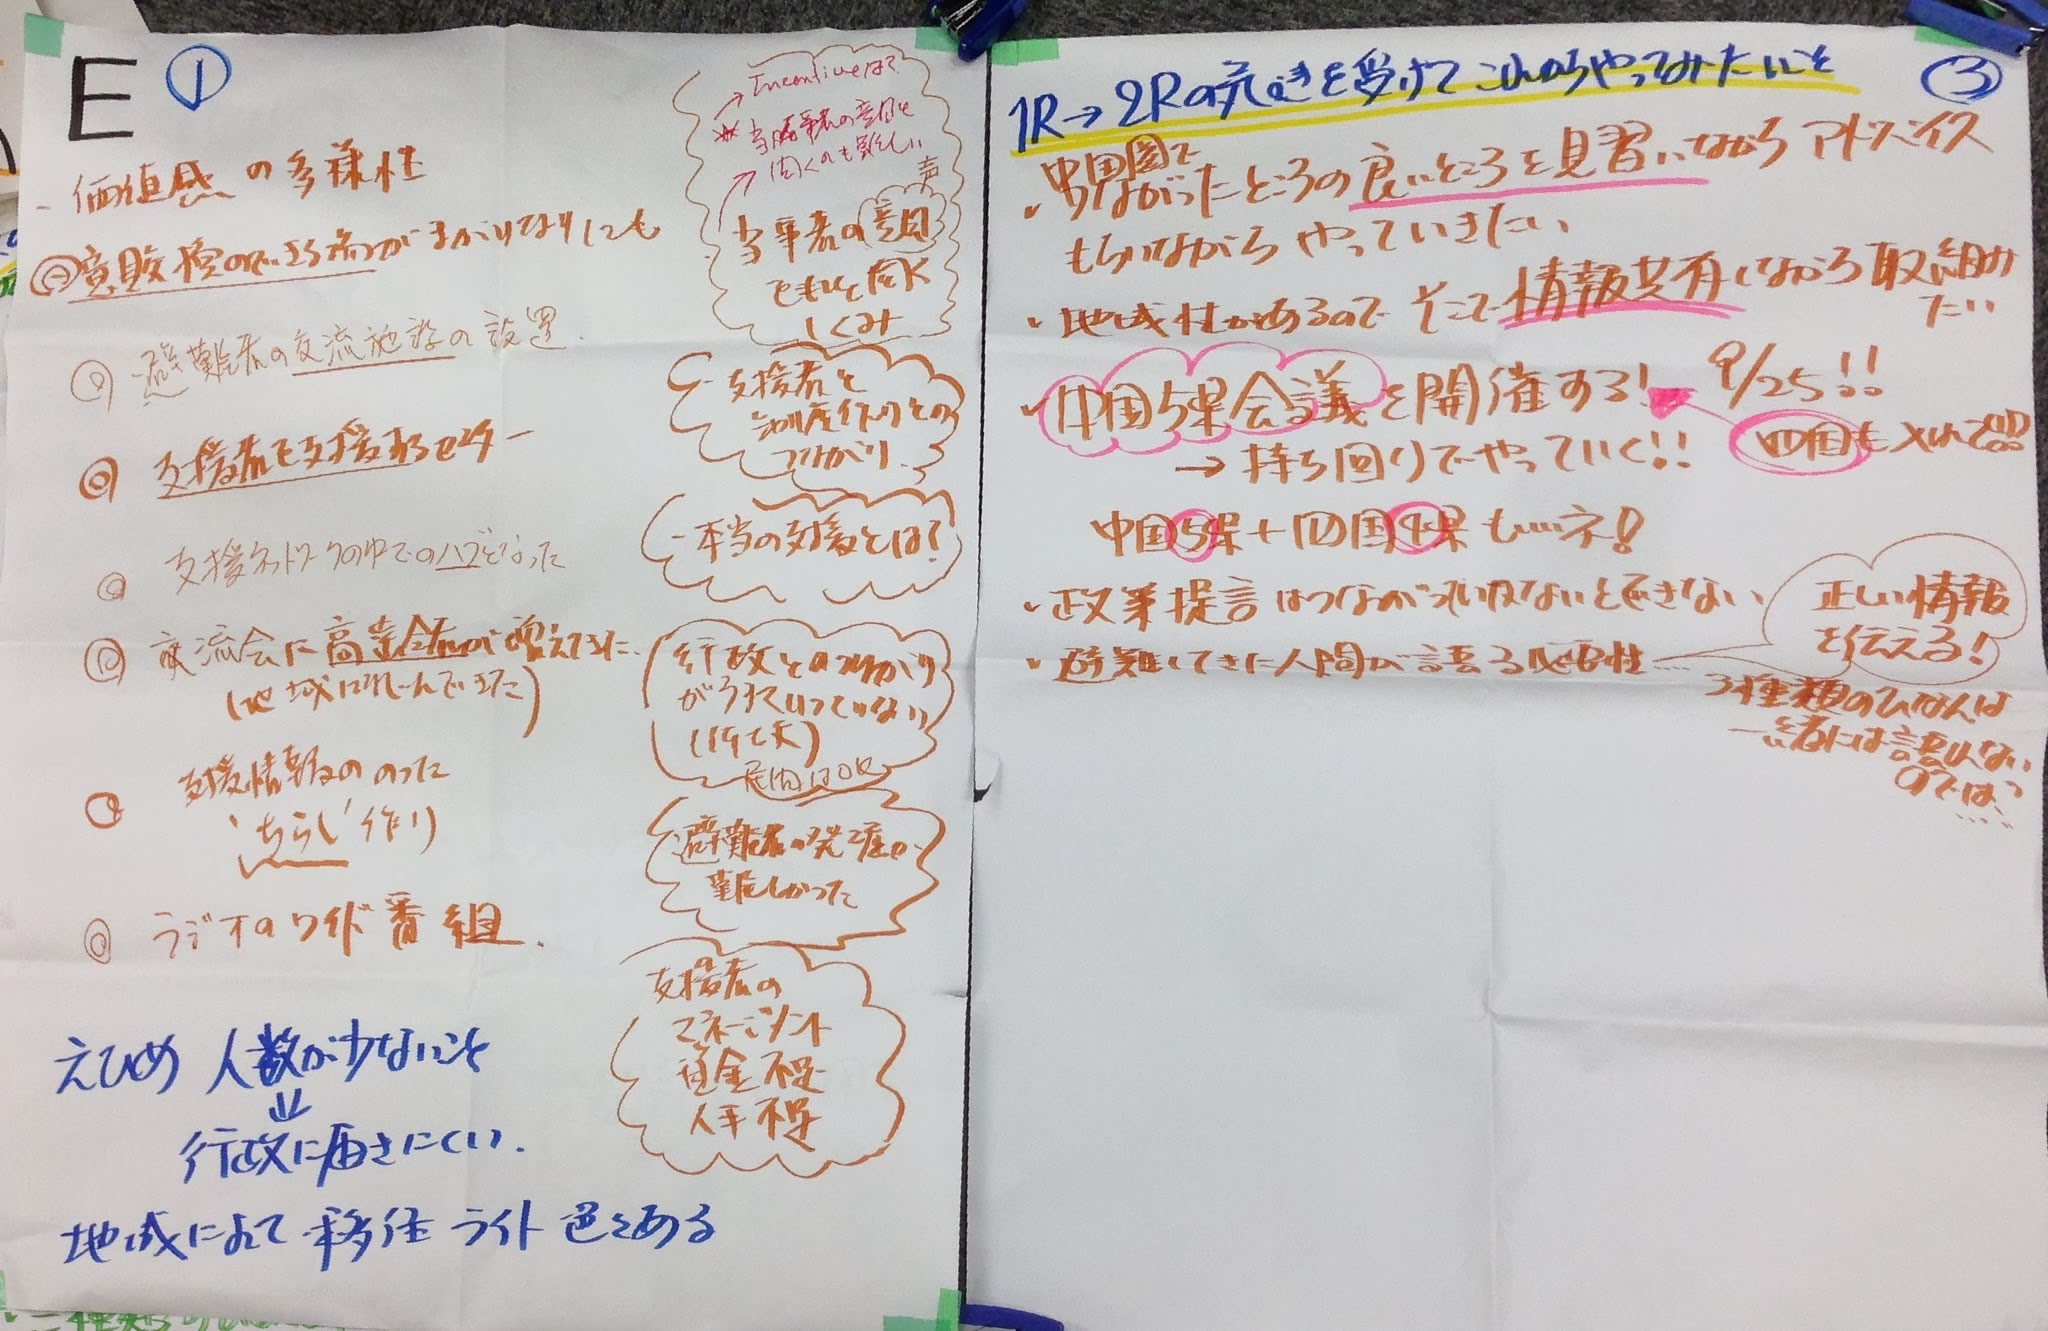 E ①
- 価値感の多様性
◎意 がまがりなりにも
◎ 避難者の交流施設の設置.
◎ 支援者を支援するセンター
◎ 支援ネットワークの中でのハブとなった
◎ 交流会に が増えてきた.
(地域に んできた)
支援情報ののった
'ちらし'作り
◎ ラジオのワイド番組.
えひめ 人数が少ないこと
⇓
行政に届きにくい.
地域によって 移住 ライト 色々ある
→ Incentiveは?
※当事者の意見を
→ 聞くのも難しい
声
当事者の意見
をもっと
しくみ
- 支援者と
制度作りとの
つながり.
- 本当の支援とは?
行政とのつながり
がうまくいっていない
民間はOK
避難者の発 が
難しかった
支援者の
マネージメント
資金不足
人手不足
③
1R→2Rの を受けてこれからやってみたいこと
中国圏で
・つながったところの良いところを見習いながらアドバイス
もらいながら やっていきたい
・地域性があるので そこで情報共有しながら取組み
たい
・中国5県会議を開催する! 9/25!!
四国も入れて!!!
→ 持ち回りでやっていく!!
中国5県+四国4県もいいネ!
・政策提言はつながっていかないとできない
・避難してきた人間が語る必要性…
正しい情報
を伝える!
3種類のひなん者は
一緒には語れない
のでは?
....